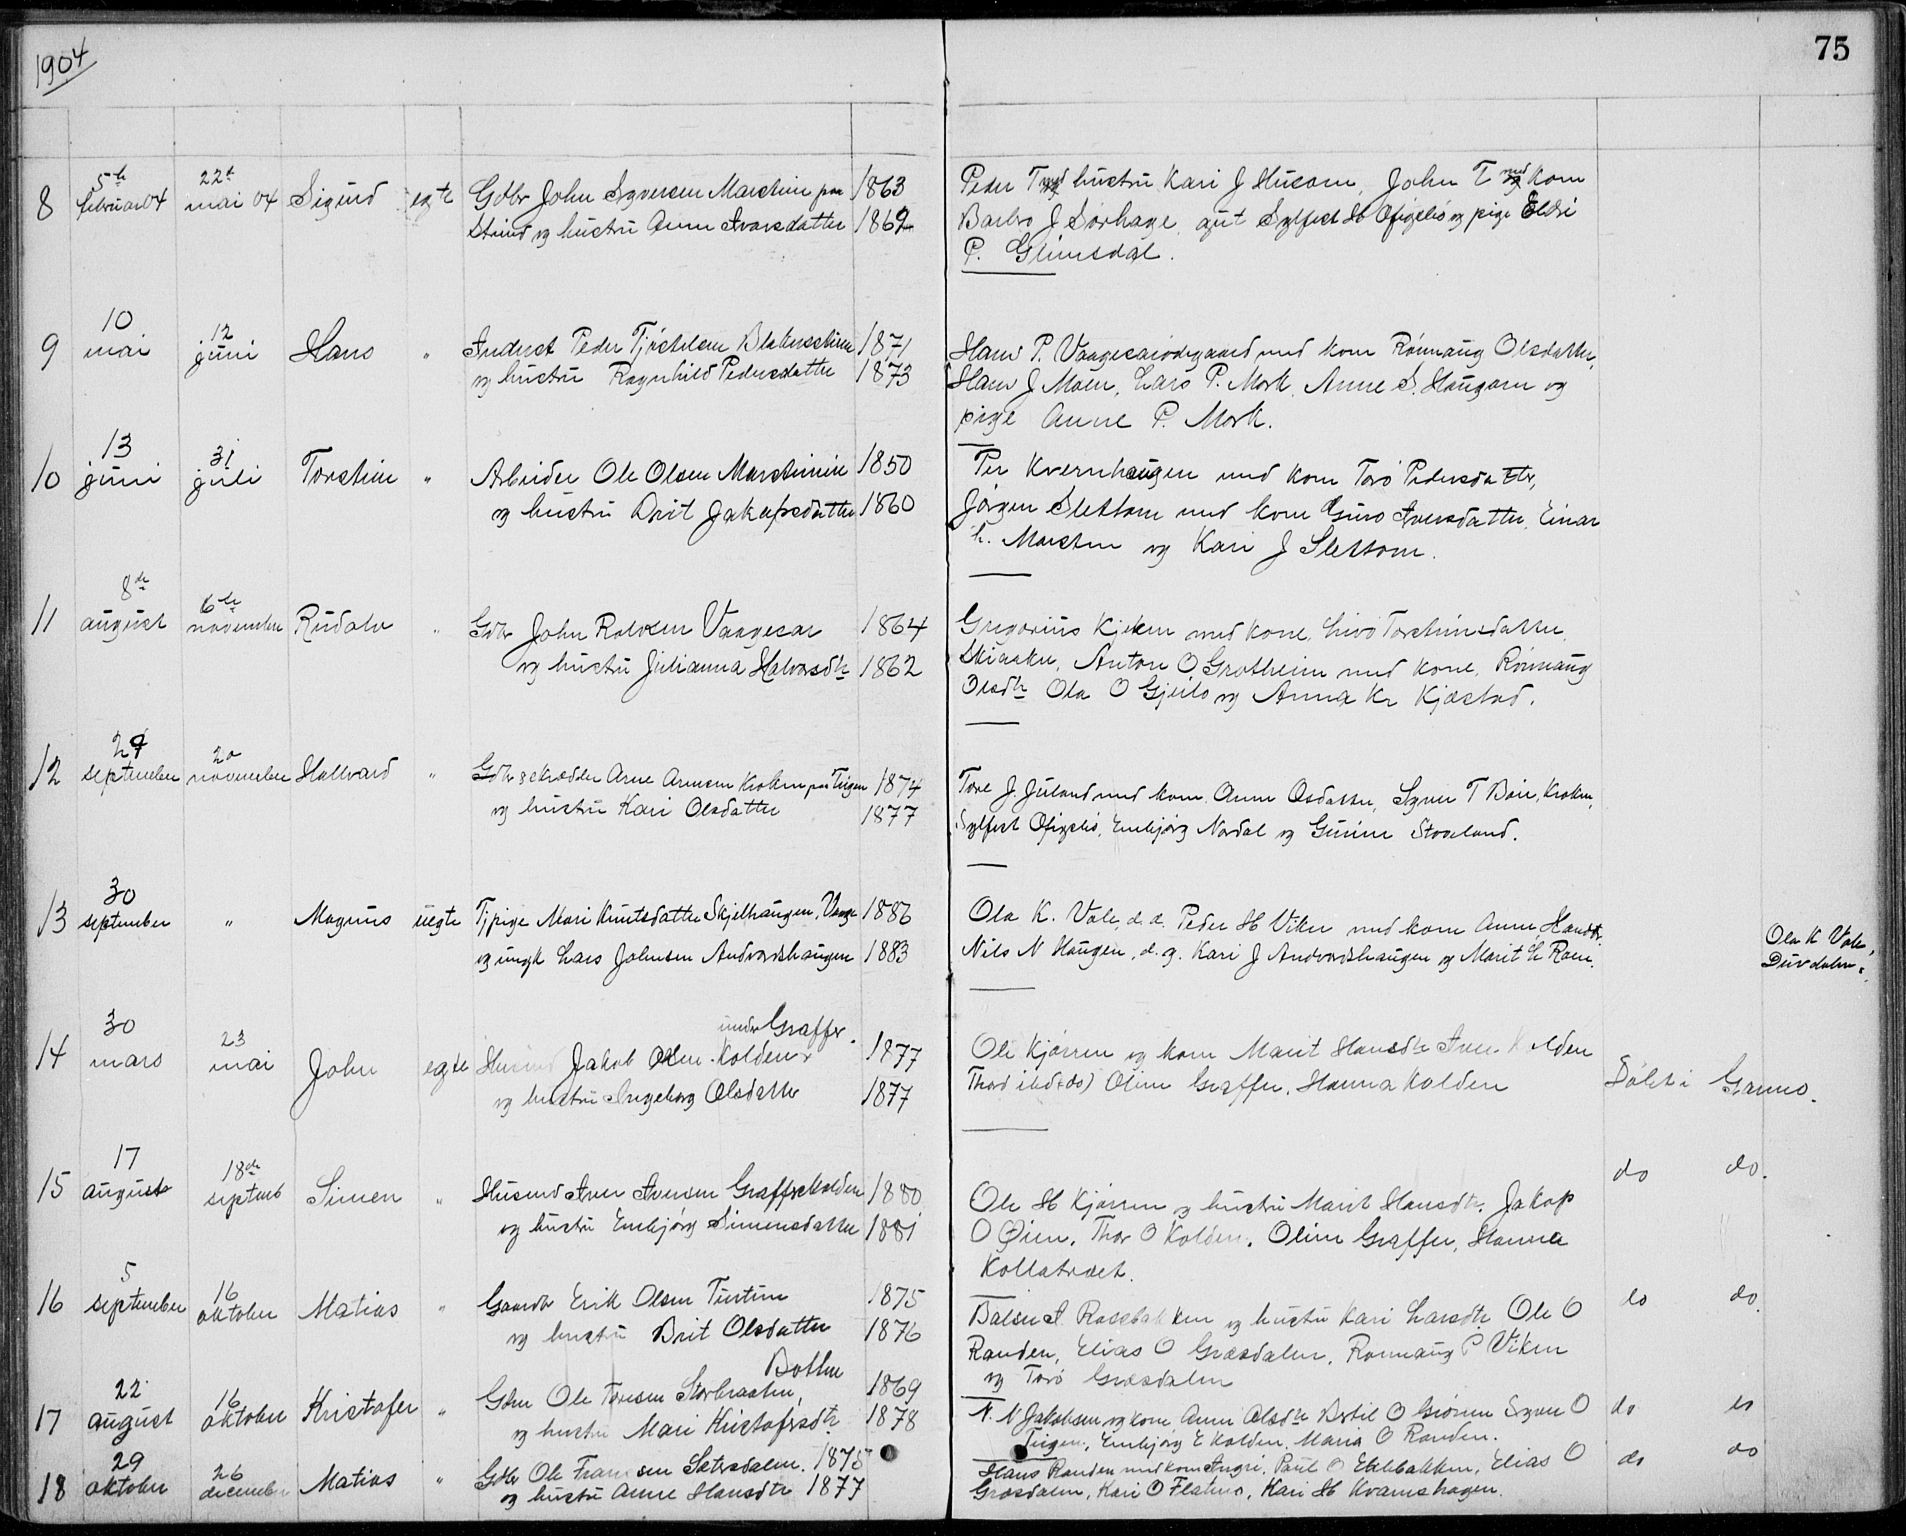 1904
75
8 5te februar 04 22de mai 04 Sigurd egte Gdbr John Syversen Marstein paa 1863
Steind og hustru Anne Ivarsdatter 1862
Peder T med hustru Kari J Husom, John T med kone
Barbro J Sørhage, gut Sylfest H Øfigslo og pige Eldri
P. Glimsdal.
9 10 mai 12 juni Hans " Inderst Peder Tjøstelsen 1871
og hustru Ragnhild Pedersdatter 1873
Hans P. Vaagesarødegaard med kone Rønnaug Olsdatter,
Hans J Moen, Lars P. Mork, Anne S. Haugom og
pige Anne P. Mork.
10 13 juni 31 juli Torstein " Arbeider Ole Olsen Marsteinsein 1850
og hustru Brit Jakupsdatter 1860
Per Kvernhaugen med kone Toro Pedersdatter,
Jørgen Slettom med kone Guro Iversdatter, Einar
h. Marstein og Kari J Slettom.
11 8de august 6te november Rudolv " Gdbr John Rolvsen Vaagesar 1864
og hustru Julianna Halvorsdtr 1862
Gregorius Kjeken med kone, Livo Torsteinsdatter
Skiaaker, Anton O Grotheim med kone, Rønnaug
Olsdtr Ola O Gjeilo og Anna Kr Kjæstad.
12 29 september 20 november Hallvard " Gdbr skrædder Arne Arnesen Kroken paa Teigen 1874
og hustru Kari Olsdatter 1877
Tore J. Juland med kone Anne Osdatter, Syver T Bøie, Kroken,
Sylfest Øfigslo, Embjørg Nordal og Gurine Storeland.
13 30 september " Magnus uegte Tj pige Mari Knutsdatter Skjelhaugen, Vaage 1886
og ungk Lars Johnsen Andvordshaugen 1883
Ola K. Vole, d.d. Peder H Viken med kone Anne Hansdtr.
Nils N Haugen, d.g. Kari J Andvordshaugen og Marit L Ramen.
Ola K Vole,
Duvdalen.
14 30 mars 23 mai John egte Husmd Jakob Olsen Kolden under Graffer. 1877
og hustru Ingeborg Olsdatter 1877
Ole Kjørren og kone Marit Hansdtr Iver Kolden
Thord ibd (do) Oline Graffer, Hanna Kolden
Døbt i Garmo.
15 17 august 18de septemb Simen " Husmd Iver Iversen Grafferkolden 1880
og hustru Embjørg Simensdatter 1881
Ole H Kjørren og hustru Marit Hansdtr, Jakop
O Øien, Thor O Kolden, Oline Graffer, Hanna
Kollatræet.
do do.
16 5 september 16 oktober Matias " Gaardbr Erik Olsen Tertun 1875
og hustru Brit Olsdatter 1876
Balser A Rossbakken og hustru Kari Larsdtr Ole O
Randen, Elias O Græsdalen, Rønnaug P Viken
og Toro Græsdalen
do do.
17 22 august 16 oktober Kristofer " Gdbr Ole Toresen Storbraaten, Botten 1869
og hustru Mari Kristofersdtr 1878
N. N Jakobsen og kone Anne Olsdtr Bertil O Grønen Syver O
Teigen, Embjørg E Kolden, Maria O Randen.
do do
18 29 oktober 26 december Matias " Gdbr Ole Fransen Sætersdalen. 1875
og hustru Anne Hansdtr 1877
Hans Randen med kone Ingri, Paul O Eklebakken, Elias O
Græsdalen, Kari O Flatmo, Kari H Kvamshagen.
do do